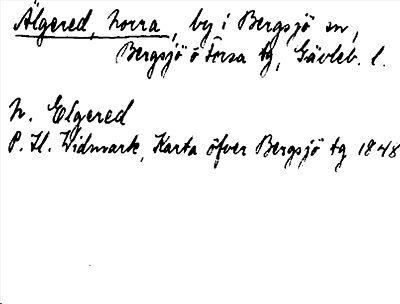 Älgered, norra, by i Bergsjö sn,
Bergsjö o Forsa tg, Gävleb. l.
N. Elgered
P. H. Widmark, Karta öfver Bergsjö tg 1848